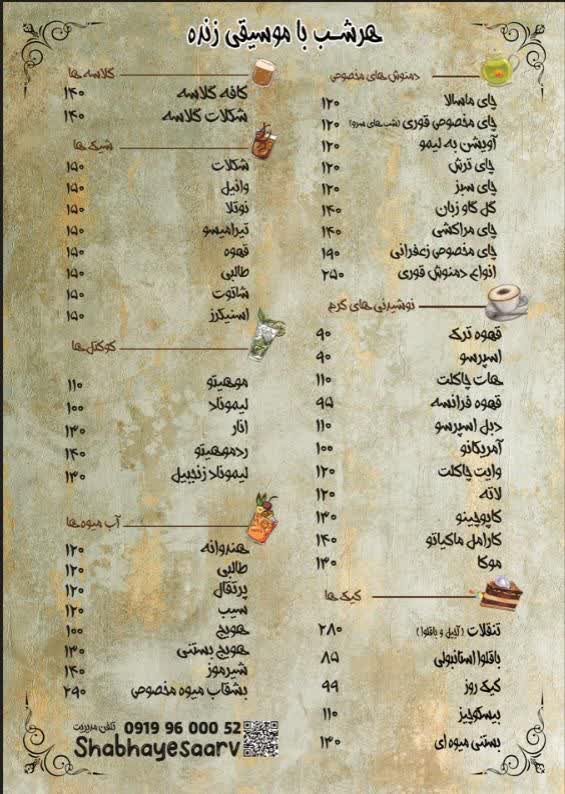 هرشب با موسیقی زنده
دمنوش های مخصوص
چای ماسالا ۱۲۰
چای مخصوص قوری (شب های سرو) ۱۲۰
آویشن به لیمو ۱۲۰
چای ترش ۱۲۰
چای سبز ۱۲۰
گل گاو زبان ۱۴۰
چای مراکشی ۱۴۰
چای مخصوص زعفرانی ۱۹۰
انواع دمنوش قوری ۲۵۰
نوشیدنی های گرم
قهوه ترک ۹۰
اسپرسو ۹۰
هات چاکلت ۱۱۰
قهوه فرانسه ۹۵
دبل اسپرسو ۱۱۰
آمریکانو ۱۰۰
وایت چاکلت ۱۲۰
لاته ۱۲۰
کاپوچینو ۱۳۰
کارامل ماکیاتو ۱۴۰
موکا ۱۳۰
کیک ها
تنقلات (آجیل و باقلوا) ۲۸۰
باقلوا استانبولی ۸۵
کیک روز ۹۹
بیسکوچیز ۱۱۰
بستنی میوه ای ۱۳۰
گلاسه ها
کافه گلاسه ۱۴۰
شکلات گلاسه ۱۴۰
شیک ها
شکلات ۱۵۰
وانیل ۱۵۰
نوتلا ۱۵۰
تیرامیسو ۱۵۰
قهوه ۱۵۰
طالبی ۱۵۰
شاتوت ۱۵۰
اسنیکرز ۱۵۰
کوکتل ها
موهیتو ۱۱۰
لیموناد ۱۰۰
انار ۱۳۰
ردموهیتو ۱۴۰
لیموناد زنجبیل ۱۳۰
آب میوه ها
هندوانه ۱۲۰
طالبی ۱۲۰
پرتقال ۱۲۰
سیب ۱۲۰
هویج ۱۰۰
هویج بستنی ۱۳۰
شیرموز ۱۴۰
بشقاب میوه مخصوص ۲۹۰
تلفن مدیریت 0919 96 000 52
Shabhayesaarv